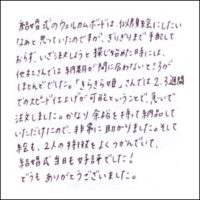 結婚式のウェルカムボードは、似顔絵にしたい
なぁと思っていたのですが、ぎりぎりまで手配して
おらず、いざ注文しようと探し始めた時には、
他社さんでは納期が間に合わないところが
ほとんどでした。「きらきら姫」さんでは2、3週間
でのスピード仕上げが可能ということで、急いで
注文しました。かなり余裕を持って納品して
いただけたので、非常に助かりました。そして
絵も、2人の特徴をよくつかんでいて、
結婚式当日も好評でした!
どうもありがとうございました。